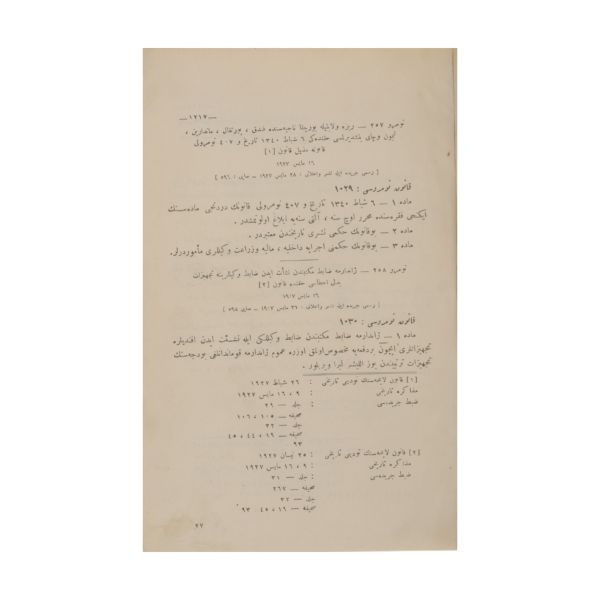 — ١٢١٧ —
نومرو ٢٥٧ — ریزه ولایتیله بورچقا ناحیه‌سنده فندق ، پورتقال ، ماندارین ،
لیمون وچای یتشدیرلمسی حقنده‌کی ٦ شباط ١٣٤٠ تاریخ و ٤٠٧ نومرولی
قانونه مذیل قانون [١]
١٦ مایس ١٩٢٧
[ رسمی جریده ایله نشر واعلانی : ٢٨ مایس ١٩٢٧ — صایی : ٥٩٦ ]
قانون نومروسی : ١٠٢٩
ماده ١ — ٦ شباط ١٣٤٠ تاریخ و ٤٠٧ نومرولی قانونك دردنجی ماده‌سنك
ایکنجی فقره‌سنده محرر اوچ سنه ، آلتی سنه‌یه ابلاغ اولونمشدر .
ماده ٢ — بوقانونك حکمی نشری تاریخندن معتبردر .
ماده ٣ — بوقانونك حکمنی اجرایه داخلیه ، مالیه وزراعت وکیللری مأموردرلر .
نومرو ٢٥٨ — ژاندارمه ضابط مکتبندن نشأت ایدن ضابط وکیللرینه تجهیزات
بدلی اعطاسی حقنده قانون [٢]
١٦ مایس ١٩٢٧
[ رسمی جریده ایله نشر واعلانی : ٢٦ مایس ١٩٢٧ — صایی : ٥٩٥ ]
قانون نومروسی : ١٠٣٠
ماده ١ — ژاندارمه ضابط مکتبندن ضابط وکیللکی ایله نشئت ایدن افندیلره
تجهیزاتلری ایچون بردفعه‌یه مخصوص اولمق اوزره عموم ژاندارمه قوماندانلغی بودجه‌سنك
تجهیزات ترتیبندن یوز اللیشر لیرا ویریلور .
[١] قانون لایحه‌سنك تودیعی تاریخی : ٢٦ شباط ١٩٢٧
مذاکره تاریخی : ٩ ، ١٦ مایس ١٩٢٧
ضبط جریده‌سی : جلد — ٢٩
صحیفه — ١٠٥ ، ١٠٦
جلد — ٣٢
صحیفه — ١٩ ، ٤٤ ، ٤٥
٩٣
[٢] قانون لایحه‌سنك تودیعی تاریخی : ٢٥ نیسان ١٩٢٧
مذاکره تاریخی : ٩ ، ١٦ مایس ١٩٢٧
ضبط جریده‌سی : جلد — ٣١
صحیفه — ٢٦٢
جلد — ٣٢
صحیفه — ١٦ ، ٤٥ ، ٩٣
٧٧